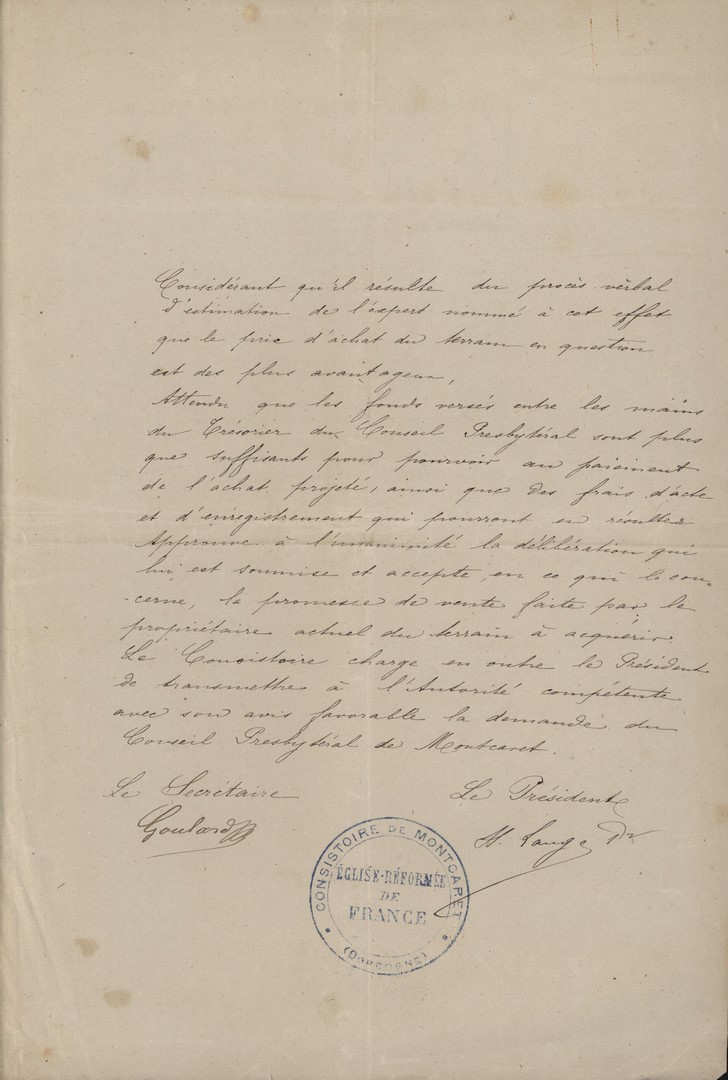 Considérant qu'il résulte du procès-vèrbal
d'estimation de l'expert nommé à cet effet
que le prix d'achat du terrain en question
est des plus avantageux,
Attendu que les fonds versés entre les mains
du Trésorier du Conseil Presbytéral sont plus
que suffisants pour pourvoir au paiement
de l'achat projeté, ainsi que des frais d'acte
et d'enregistrement qui pourront en résulter
Approuve à l'unanimité la délibération qui
lui est soumise et accepte, en ce qui le con-
-cerne, la promesse de vente faite par le
propriétaire actuel du terrain à acquérir.
Le Consistoire charge en outre le Président
de transmettre à l'Autorité compétente
avec son avis favorable la demande du
Conseil Presbytéral de Montcaret.
Le Secrétaire
Le Président
Goulard
CONSISTOIRE DE MONTCARET
ÉGLISE-RÉFORMÉE
DE
FRANCE
(DORDOGNE)